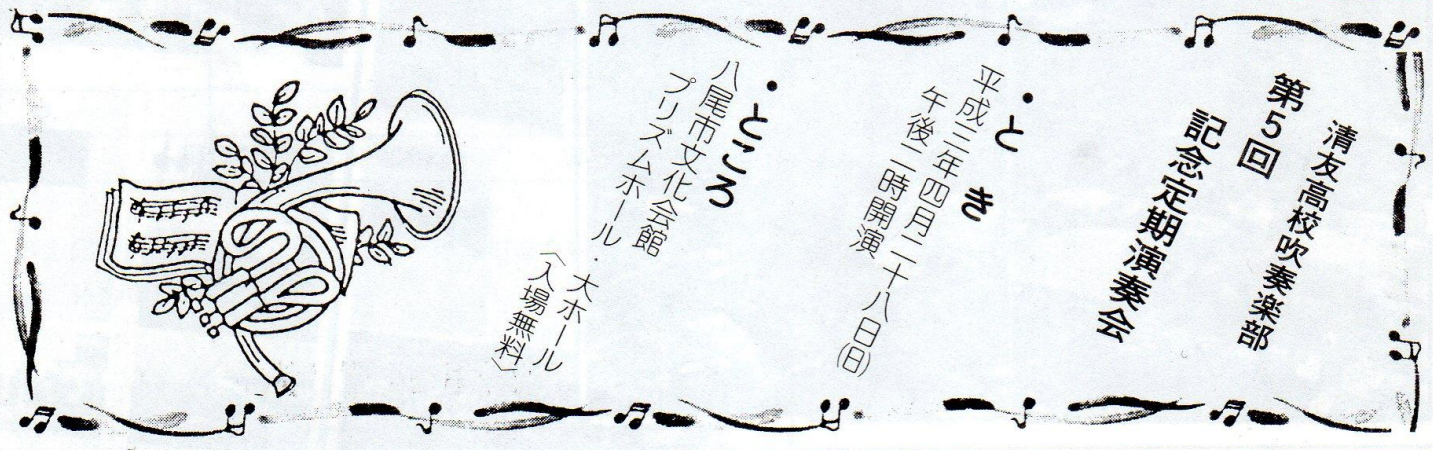 清友高校吹奏楽部
第5回
記念定期演奏会
・とき
平成三年四月二十八日(日)
午後二時開演
・ところ
八尾市文化会館
プリズムホール・大ホール
〈入場無料〉